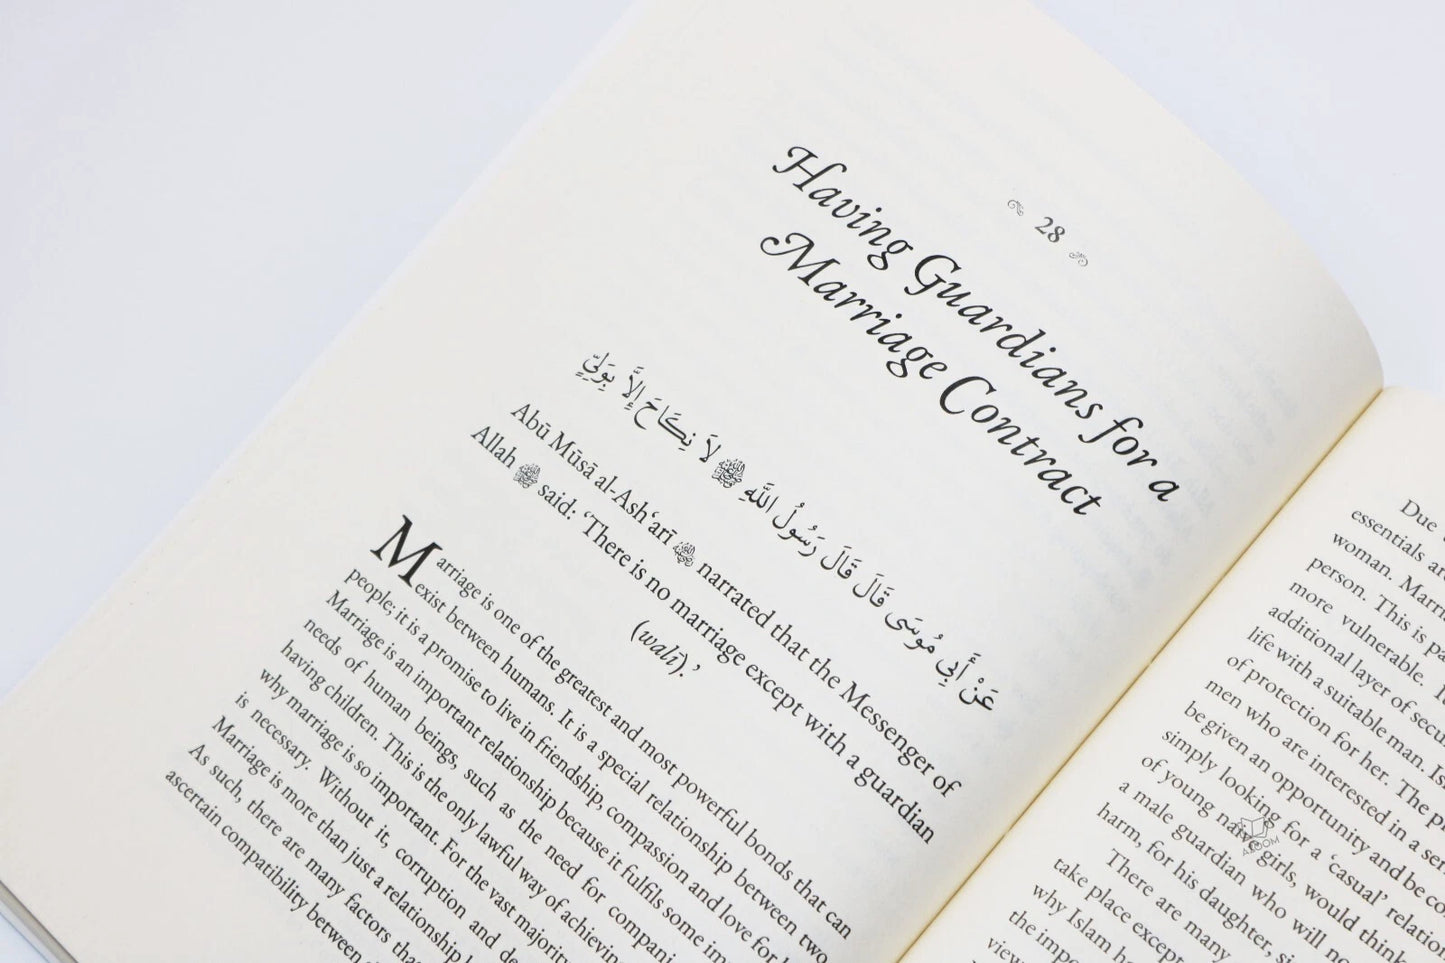 28
Having Guardians for a
Marriage Contract
عَنْ أَبِي مُوسَى قَالَ قَالَ رَسُولُ اللَّهِ ﷺ لاَ نِكَاحَ إِلَّا بِوَلِيٍّ
Abū Mūsā al-Ash‘arī narrated that the Messenger of
Allah ﷺ said: ‘There is no marriage except with a guardian
(walī).’
Marriage is one of the greatest and most powerful bonds that can
exist between humans. It is a special relationship between two
people; it is a promise to live in friendship, compassion and love for
Marriage is an important relationship because it fulfils some
needs of human beings, such as the need for
having children. This is the only lawful way of
why marriage is so important. For the vast
is necessary. Without it, corruption and
Marriage is more than just a relationship
As such, there are many factors
ascertain compatibility between
Due
essentials
woman.
person. This is
more vulnerable.
additional layer of
life with a suitable man.
of protection for her. The
men who are interested in a
be given an opportunity and be
simply looking for a ‘casual’
of young naive girls, would
a male guardian who will
harm, for his daughter,
There are many
take place except
why Islam
the
AZOOM